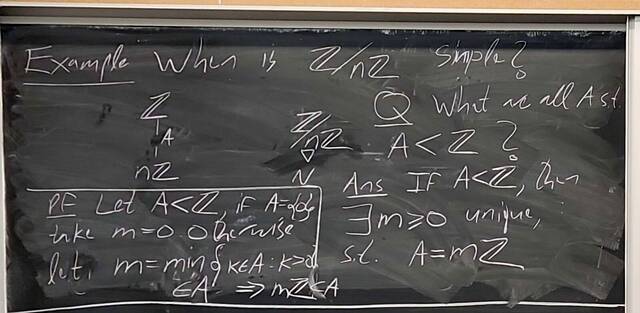 Example When is ℤ/nℤ simple?
ℤ
A
nℤ
ℤ/nℤ
▽
N
Q What are all A s.t.
A < ℤ ?
Ans If A<ℤ, then
∃ m≥0 unique,
s.t. A = mℤ
Pf Let A<ℤ, if A={0}
take m=0. Otherwise
let m=min{k∈A: k>0}
∈A ⇒ mℤ⊂A